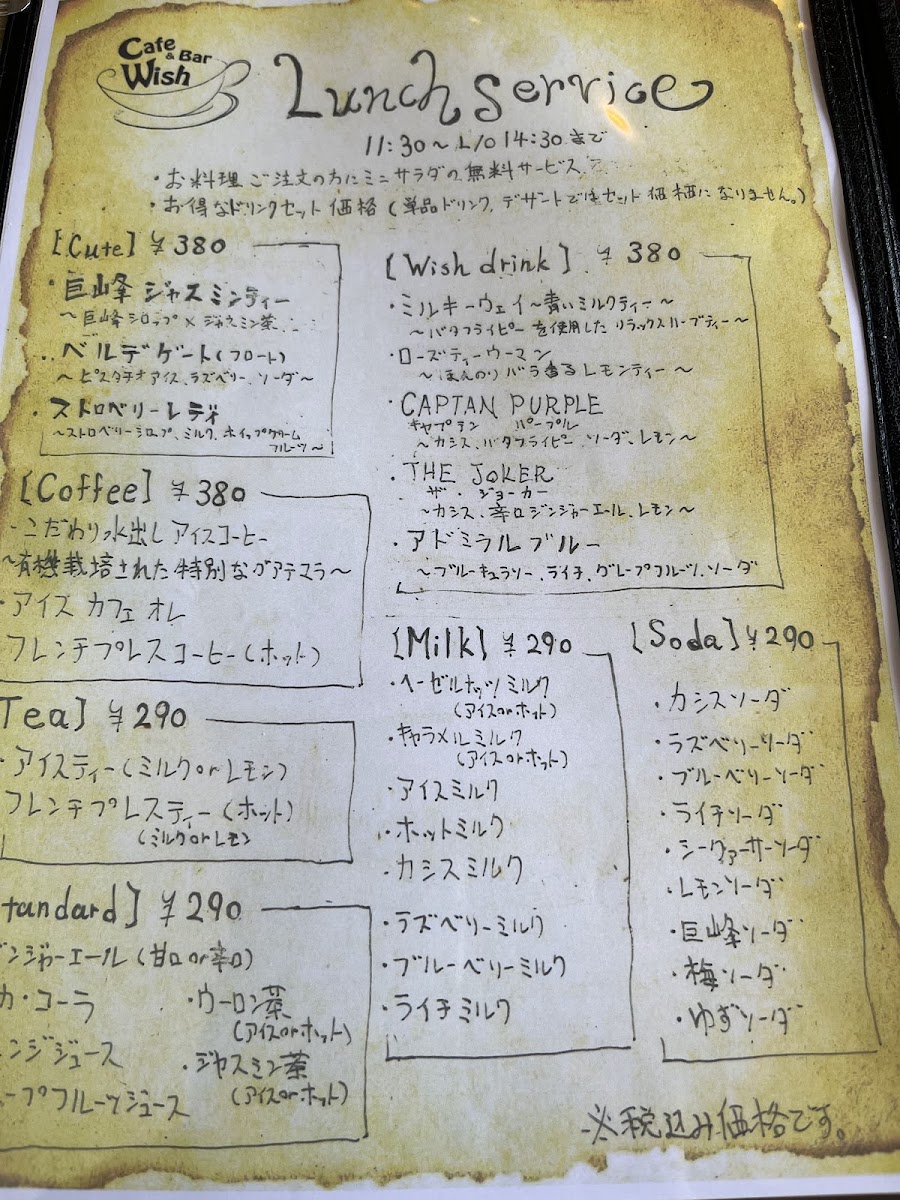 Cafe & Bar Wish
Lunch Service
11:30〜L/O 14:30まで
・お料理ご注文の方にミニサラダの無料サービス
・お得なドリンクセット価格(単品ドリンク、デザートではセット価格になりません。)
[Cute] ¥380
・巨峰ジャスミンティー
〜巨峰シロップ×ジャスミン茶
・ベルデゲート(フロート)
〜ピスタチオアイス、ラズベリー、ソーダ〜
・ストロベリーレディ
〜ストロベリーシロップ、ミルク、ホイップクリーム
フルーツ〜
[Coffee] ¥380
・こだわり水出しアイスコーヒー
〜有機栽培された特別なグアテマラ〜
・アイスカフェオレ
フレンチプレスコーヒー(ホット)
Tea] ¥290
・アイスティー(ミルクorレモン)
フレンチプレスティー(ホット)
(ミルクorレモン
tandard] ¥290
ンジャーエール(甘口or辛口)
カ・コーラ
ンジジュース
ープフルーツジュース
・ウーロン茶
(アイスorホット)
・ジャスミン茶
(アイスorホット)
[Wish drink] ¥380
・ミルキーウェイ〜青いミルクティー〜
〜バタフライピーを使用したリラックスハーブティー〜
・ローズティーウーマン
〜ほんのりバラ香るレモンティー〜
・CAPTAN PURPLE
キャプテン パープル
〜カシス、バタフライピー、ソーダ、レモン〜
・THE JOKER
ザ・ジョーカー
〜カシス、辛口ジンジャーエール、レモン〜
・アドミラルブルー
〜ブルーキュラソー、ライチ、グレープフルーツ、ソーダ
[Milk] ¥290
・ヘーゼルナッツミルク
(アイスorホット)
・キャラメルミルク
(アイスorホット)
・アイスミルク
・ホットミルク
・カシスミルク
・ラズベリーミルク
・ブルーベリーミルク
・ライチミルク
[Soda] ¥290
・カシスソーダ
・ラズベリーソーダ
・ブルーベリーソーダ
・ライチソーダ
・シークヮーサーソーダ
・レモンソーダ
・巨峰ソーダ
・梅ソーダ
・ゆずソーダ
※税込み価格です。